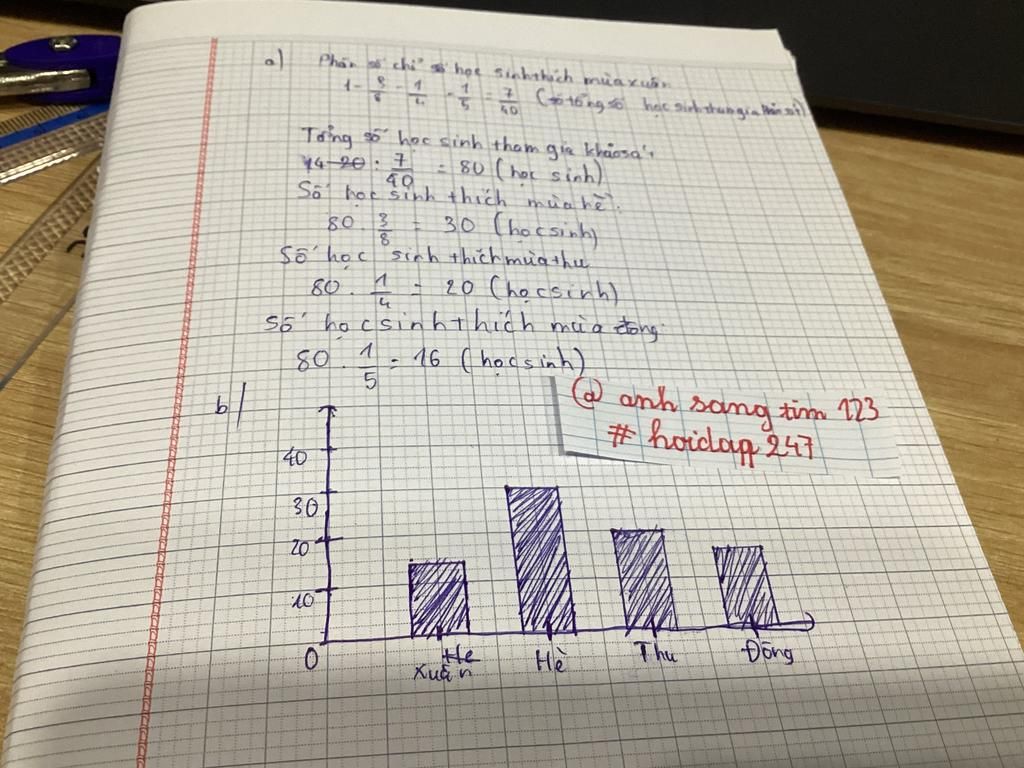 a) Phân số chỉ số học sinh thích mùa xuân
1 - 3/8 - 1/4 - 1/5 = 7/40 (số tổng số học sinh tham gia khảo sát)
Tổng số học sinh tham gia khảo sát
14 20 : 7/40 = 80 (học sinh)
Số học sinh thích mùa hè:
80 . 3/8 = 30 (học sinh)
Số học sinh thích mùa thu
80 . 1/4 = 20 (học sinh)
Số học sinh thích mùa đông:
80 . 1/5 = 16 (học sinh)
@ anh sang tim 123
# hoidap 247
b/
40
30
20
10
0
He
Xuân Hè Thu Đông